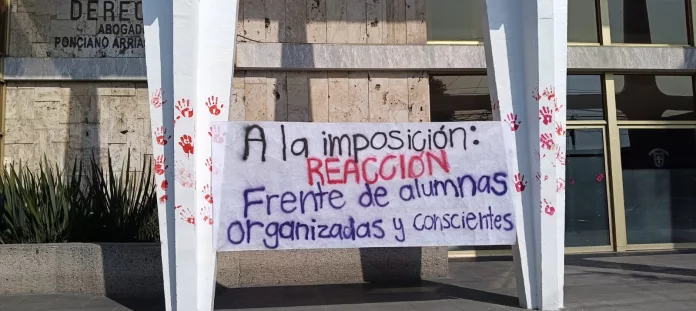 DEREC
ABOGAD
PONCIANO ARRIA
A la imposición:
REACCIÓN
Frente de alumnas
organizadas y conscientes